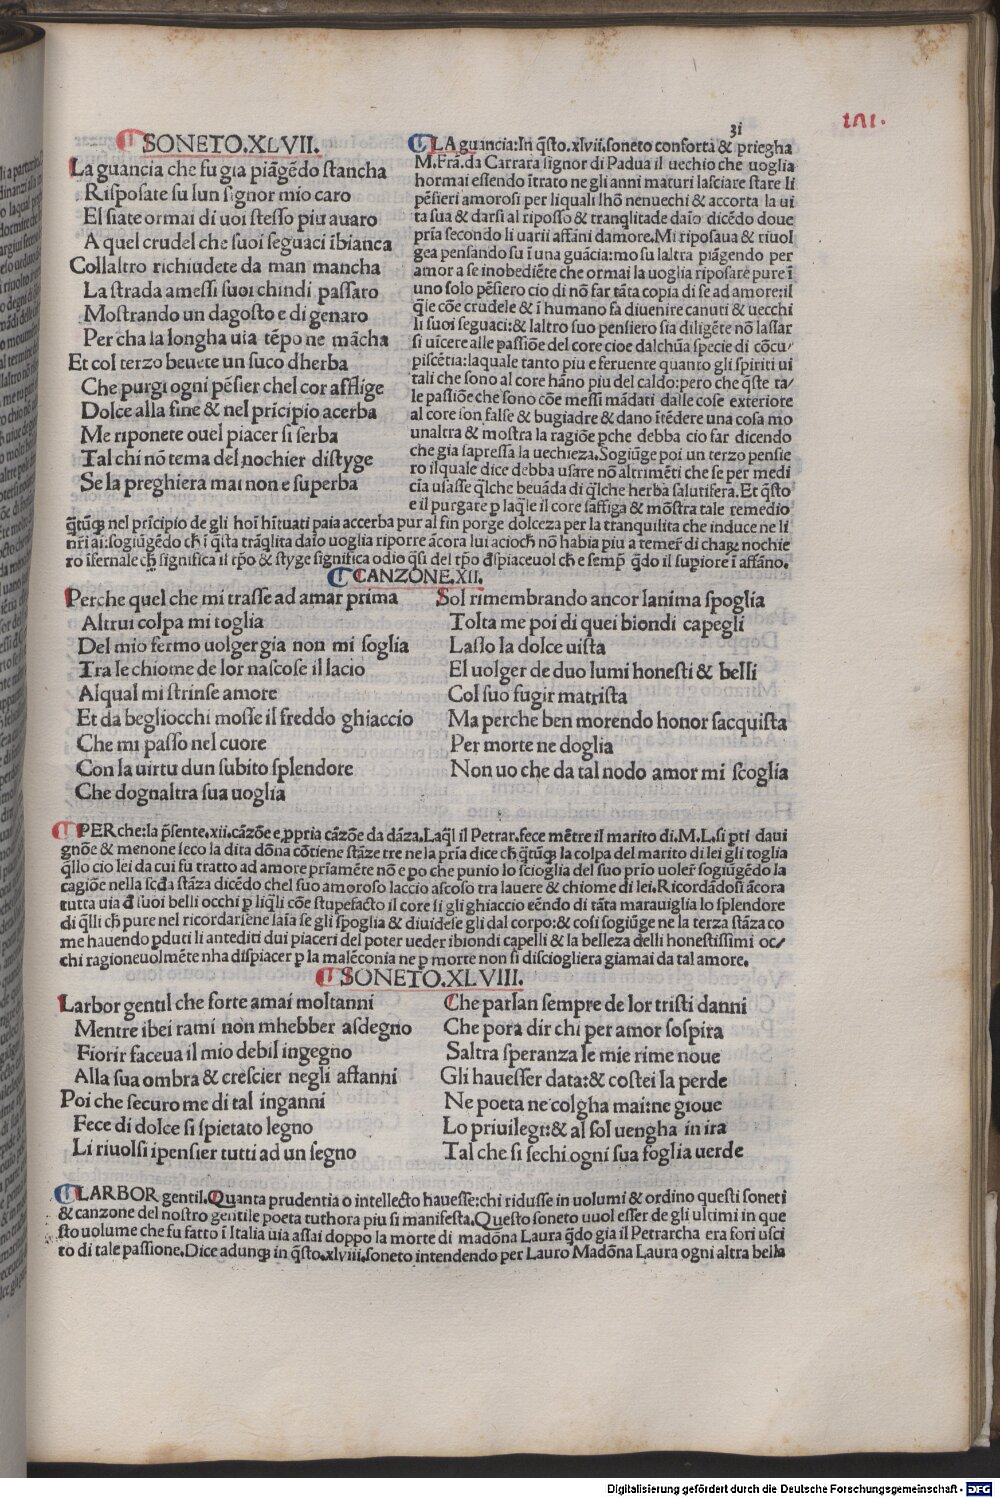 31
SONETO.XLVII.
La guancia che fu gia piãgẽdo stancha
Risposate su lun signor mio caro
El siate ormai di uoi stesso piu auaro
A quel crudel che suoi seguaci ĩbianca
Collaltro richiudete da man mancha
La strada amessi suoi chindi passaro
Mostrando un dagosto e di genaro
Per cha la longha uia tẽpo ne mãcha
Et col terzo beuete un suco dherba
Che purgi ogni pẽsier chel cor afflige
Dolce alla fine & nel prĩcipio acerba
Me riponete ouel piacer si serba
Tal chi nõ tema del nochier distyge
Se la preghiera mai non e superba
LA guancia: In q̃sto. xlvii. soneto conforta & priegha
M. Frã. da Carrara signor di Padua il uechio che uoglia
hormai essendo ĩtrato ne gli anni maturi lasciare stare li
pẽsieri amorosi per liquali lhõ nenuechi & accorta la ui
ta sua & darsi al riposso & tranq̃litade daĩo dicẽdo doue
pria secondo li uarii affãni damore. Mi riposaua & riuol
gea pensando su ĩ una guãcia: mo su laltra piãgendo per
amor a se inobediẽte che ormai la uoglia riposare pure ĩ
uno solo pẽsiero cio di nõ far tãta copia di se ad amore: il
q̃le cõe crudele & ĩ humano fa diuenire canuti & uecchi
li suoi seguaci: & laltro suo pensiero sia diligẽte nõ lassar
si uicere alle passiõe del core cioe dalchũa specie di cõcu/
piscẽtia: laquale tanto piu e feruente quanto gli spiriti ui
tali che sono al core hãno piu del caldo: pero che q̃ste ta/
le passiõe che sono cõe messi mãdati dalle cose exteriore
al core son false & bugiadre & dano ĩtẽdere una cosa mo
unaltra & mostra la ragiõe pche debba cio far dicendo
che gia sapressa la uechieza. Sogiũge poi un terzo pensie
ro ilquale dice debba usare nõ altrimẽti che se per medi
cia usasse q̃lche beuãda di q̃lche herba salutifera. Et q̃sto
e il purgare p laq̃le il core saffiga & mõstra tale remedio
q̃tũq nel prĩcipio de gli hoĩ hĩtuati paia accerba pur al fin porge dolceza per la tranquilita che induce ne li
nr̃i ai: sogiũgẽdo ch ĩ q̃sta trãq̃lita daĩo uoglia riporre ãcora lui acioch nõ habia piu a temer di charõ nochie
ro ĩfernale ch significa il tpõ & styge significa odio q̃si del tpõ dspiaceuol ch e semp q̃do il supiore ĩ affãno.
CANZONE.XII.
Perche quel che mi trasse ad amar prima
Altrui colpa mi toglia
Del mio fermo uolger gia non mi soglia
Tra le chiome de lor nascose il lacio
Alqual mi strinse amore
Et da begliocchi mosse il freddo ghiaccio
Che mi passo nel cuore
Con la uirtu dun subito splendore
Che dognaltra sua uoglia
Sol rimembrando ancor lanima spoglia
Tolta me poi di quei biondi capegli
Lasso la dolce uista
El uolger de duo lumi honesti & belli
Col suo fugir matrista
Ma perche ben morendo honor sacquista
Per morte ne doglia
Non uo che da tal nodo amor mi scoglia
PERche: la p̃sente. xii. cãzõe e ppria cãzõe da dãza. Laq̃l il Petrar. fece mẽtre il marito di. M. L. si pti daui
gnõe & menone seco la dita dõna cõtiene stãze tre ne la pria dice ch q̃tũq la colpa del marito di lei gli toglia
q̃llo cio lei da cui fu tratto ad amore priamẽte nõ e po che punio lo scioglia del suo prio uoler sogiũgẽdo la
cagiõe nella scda stãza dicẽdo chel suo amoroso laccio ascoso tra lauere & chiome di lei. Ricordãdosi ãcora
tutta uia d suoi belli occhi p liq̃li cõe stupefacto il core si gli ghiaccio eẽndo di tãta marauiglia lo splendore
di q̃lli ch pure nel ricordarsene laĩa se gli spoglia & diuidese gli dal corpo: & cosi sogiũge ne la terza stãza co
me hauendo pduti li antediti dui piaceri del poter ueder ibiondi capelli & la belleza delli honestissimi oc/
chi ragioneuolmẽte nha dispiacer p la malẽconia ne p morte non si disciogliera giamai da tal amore.
SONETO.XLVIII.
Larbor gentil che forte amai moltanni
Mentre ibei rami non mhebber asdegno
Fiorir faceua il mio debil ingegno
Alla sua ombra & crescier negli affanni
Poi che securo me di tal inganni
Fece di dolce si spietato legno
Li riuolsi ipensier tutti ad un segno
Che parlan sempre de lor tristi danni
Che pora dir chi per amor sospira
Saltra speranza le mie rime noue
Gli hauesser data: & costei la perde
Ne poeta ne colgha mai: ne gioue
Lo priuilegi: & al sol uengha in ira
Tal che si sechi ogni sua foglia uerde
LARBOR gentil. Quanta prudentia o intellecto hauesse: chi ridusse in uolumi & ordino questi soneti
& canzone del nostro gentile poeta tuthora piu si manifesta. Questo soneto uuol esser de gli ultimi in que
sto uolume che fu fatto ĩ Italia uia assai doppo la morte di madõna Laura q̃do gia il Petrarcha era fori usci
to di tale passione. Dice adunq in q̃sto. xlviii. soneto intendendo per Lauro Madõna Laura ogni altra bella
Digitalisierung gefördert durch die Deutsche Forschungsgemeinschaft - DFG